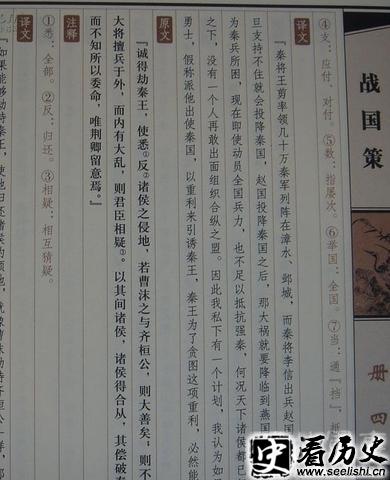 战国策
册四
④支：应付、对付。⑤数：指屡次。⑥举国：全国。⑦当：通“挡”，
译文
“秦将王翦率领几十万秦军列阵在漳水、邺城，而秦将李信出兵赵国
旦支持不住就会投降秦国，赵国投降秦国之后，那大祸就要降临到燕国
为秦兵所困，现在即使动员全国兵力，也不足以抵抗强秦，何况天下诸侯都已
之下，没有一个人再敢出面组织合纵之盟。因此我私下有一个计划，我认为如
勇士，假称派他出使秦国，以重利来引诱秦王，秦王为了贪图这项重利，必然能
原文
“诚得劫秦王，使悉①反②诸侯之侵地，若曹沫之与齐桓公，则大善矣；则不
大将擅兵于外，而内有大乱，则君臣相疑③。以其间诸侯，诸侯得合从，其偿破秦
而不知所以委命，唯荆卿留意焉。”
注释
①悉：全部。②反：归还。③相疑：相互猜疑。
译文
“如果能够劫持秦王，使他归还诸侯的领地，就像曹沫劫持齐桓公一样，那
史看历史
www.seelishi.cn